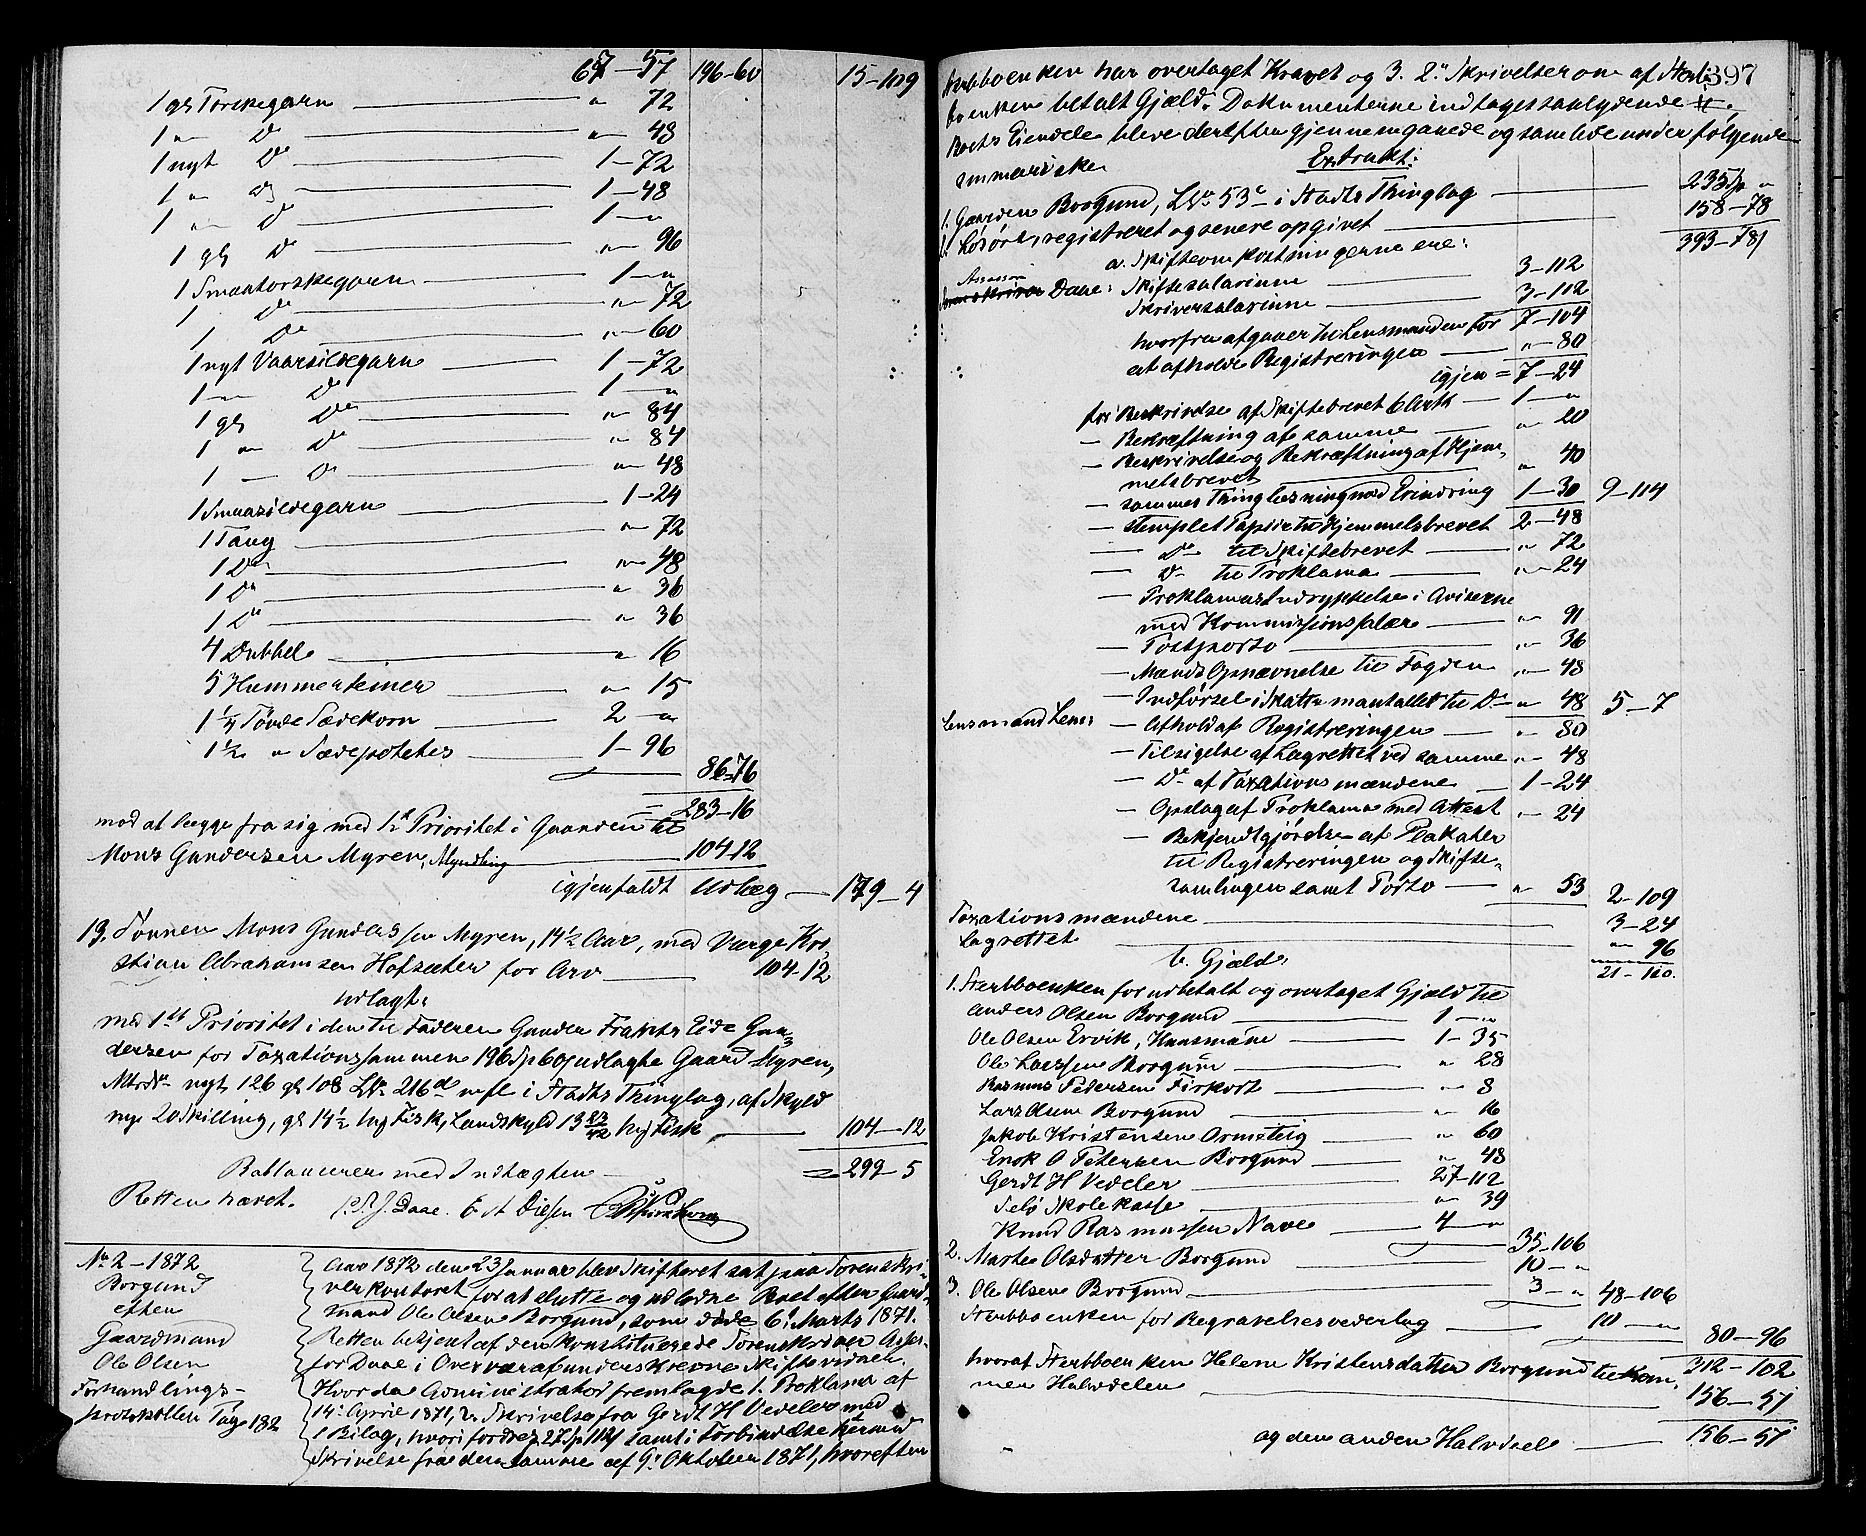 67-57 196-60 15-109
1 gl Torskegarn " 72
1 " Do " 48
1 nyt Do 1-72
1 " Do 1-48
1 " Do 1-"
1 gl Do " 96
1 Smaatorskegarn 1-"
1 Do " 72
1 Do " 60
1 nyt Vaarsildegarn 1-72
1 " Do 1-"
1 gl Do " 84
1 " Do " 84
1 - Do " 48
1 Smaasildegarn 1-24
1 Toug " 72
1 Do " 48
1 Do " 36
1 Do " 36
4 Dubbel " 16
5 Hummerteiner " 15
1 1/4 Tønde Sædekorn 2-"
1 1/2 " Sædepoteter 1-96
86-76
= 283-16
mod at lægge fra sig med 1ste Prioritet i Gaarden til
Mons Gundersen Myren, Myndling 104-12
igjenfaldt Udlæg 179-4
13. Sønnen Mons Gundersen Myren, 14 1/2 Aar, med Værge Kri-
stian Abrahamsen Hofsæter for Arv 104-12
udlagt:
med 1ste Prioritet i den til Faderen Gunder Frants Eide Gun-
dersen for Taxationssummen 196 Sp 60 s udlagte Gaard Myren,
Mtrno nyt 126 gl 108 Lno 216d m fl i Stadts Thinglag, af Skyld
ny 2 Skilling, gl 14 1/2 mrk Fisk, Landskyld 13 23/42 mrk Fisk 104-12
Ballancerer med Indtægten = 299-5
Retten hævet. Daae. E A Diesen
No 2-1872
Borgund
efter
Gaardmand
Ole Olsen
Forhandlings-
protokollen Pag 182
Aar 1872 den 23 Januar blev Skifteret sat paa Sorenskri-
verkontoret for at slutte og udlodne Boet efter Gaard-
mand Ole Olsen Borgund, som døde 6: Marts 1871.
Retten betjent af den konstituerede Sorenskriver Asses-
sor Daae i Overvær af underskrevne Skiftevidner.
Hvorda Administrator fremlagde 1. Proklama af
14: April 1871, 2. Skrivelse fra Gerdt H Vedeler med
1 Bilag, hvori fordres 27 Sp 112 s samt i Forbindelse hermed
Skrivelse fra den samme af 9: Oktober 1871, hvorefter
397
Sterbboenken har overtaget Kravet og 3. 2: Skrivelser om af Sterb-
boenken betalt Gjæld. Dokumenterne indtages saalydende
Boets Eiendele bleve derefter gjennemgaaede og samlede under følgende
summariske Extrakt:
1. Gaarden Borgund, Lno 53c i Stadts Thinglag 235 Sp "
2. Løsøre, registreret og senere opgivet 158-78
393-78
a. Skifteomkostningerne ere:
Assessor
Sorenskriver Daae: Skiftesalarium 3-112
Skriversalarium 3-112
7-104
hvorfra afgaaer til Lensmanden for
at afholde Registreringen " 80
igjen = 7-24
for Beskrivelse af Skiftebrevet 6 Ark 1-"
- Bekræftning af samme " 20
- Beskrivelse og Bekræftning af Hjem-
melsbrevet " 40
- sammes Thinglæsning med Erindring 1-30 9-114
- stemplet Papir til Hjemmelsbrevet 2-48
- Do til Skiftebrevet " 72
- Do til Proklama " 24
- Proklamas Indrykkelse i Aviserne
med Kommissionssalær " 91
- Postporto " 36
- Mænds Opnævnelse til Fogden " 48
- Indførsel i Skattemantallet til Do " 48 5-7
Lensmand Lem: - Afhold af Registreringen " 80
- Tilsigelse af Lagrettet ved samme " 48
- Do af Taxationsmændene 1-24
- Opslag af Proklama med Attest " 24
- Bekjendtgjørelse af Plakater
til Registreringen og Skifte-
samlingen samt Porto " 53 2-109
Taxationsmændene 3-24
Lagrettet " 96
21-110.
b. Gjæld:
1. Sterbboenken for udbetalt og overtaget Gjæld til
Anders Olsen Borgund 1-"
Ole Olsen Ervik, Huusmand 1-35
Ole Larssen Borgund " 28
Rasmus Petersen Fiskort " 8
Lars Olsen Borgund " 16
Jakob Kristensen Ormsteig " 60
Enok O Petersen Borgund " 48
Gerdt H Vedeler 27-112
Selø Skolekasse " 39
Knud Rasmussen Nave 4-"
35-106
2. Marte Olsdatter Borgund 10-"
3. Ole Olsen Borgund 3-" 48-106
Sterbboenken for Begravelsesvederlag 10-"
80-96
312-102
hvoraf Sterbboenken Helene Kristensdatter Borgund tilkom-
mer Halvdelen 156-51
og den anden Halvdeel 156-51